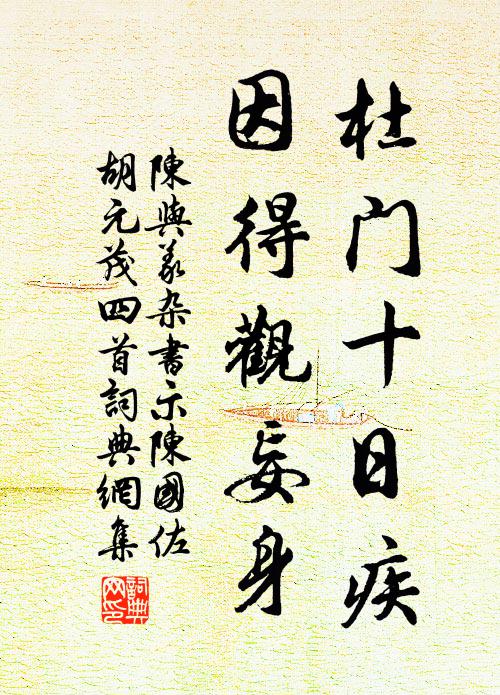 杜门十日疾
因得觀妄身
陳與義杂書示陳國佐
胡元茂四首詞典網集
詞典网印